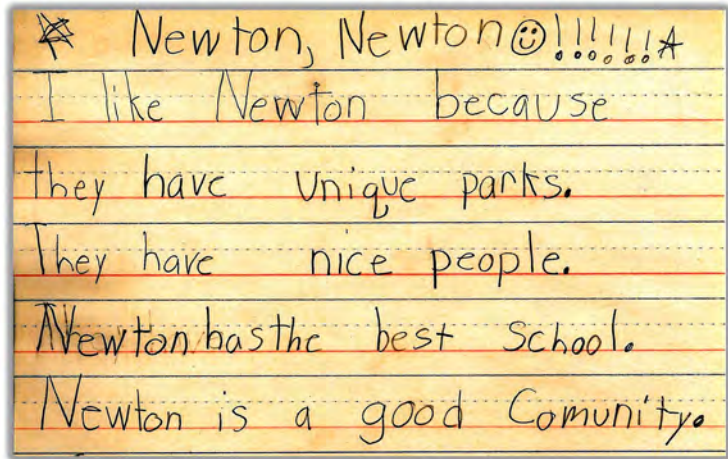 ☆ Newton, Newton☺!!!!!!☆
I like Newton because
they have unique parks.
They have nice people.
Newton has the best School.
Newton is a good Comunity.